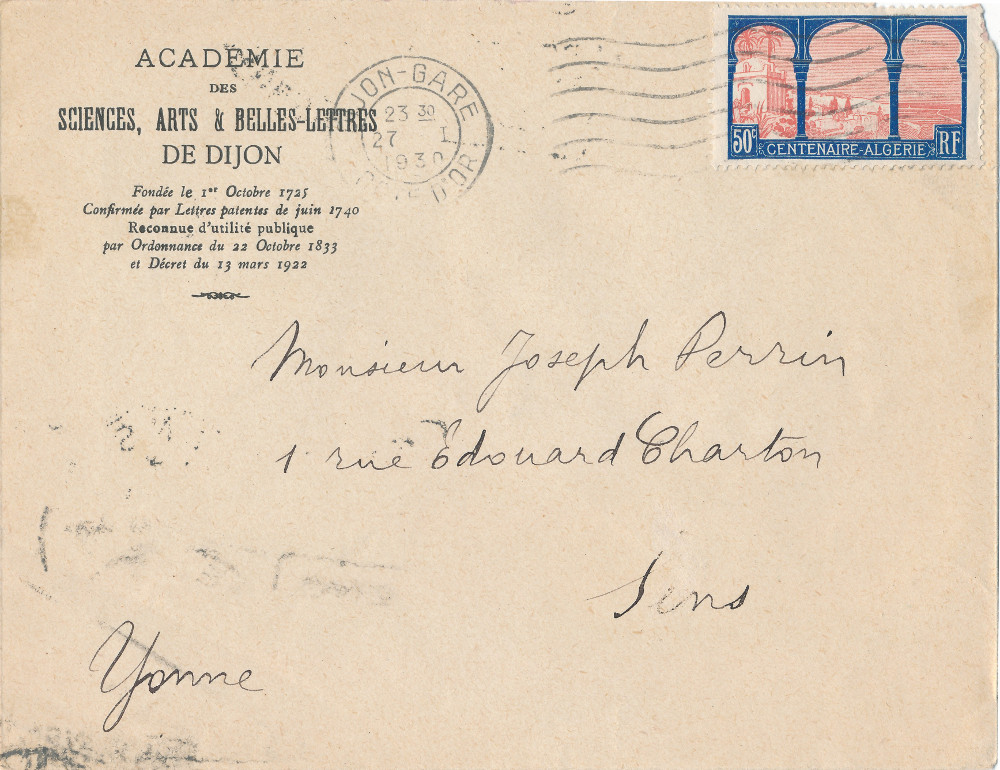 ACADÉMIE
DES
SCIENCES, ARTS & BELLES-LETTRES
DE DIJON
Fondée le 1er Octobre 1725
Confirmée par Lettres patentes de juin 1740
Reconnue d'utilité publique
par Ordonnance du 22 Octobre 1833
et Décret du 13 mars 1922
DIJON-GARE
23 30
27 I
1930
COTE D'OR
50c CENTENAIRE-ALGÉRIE RF
Monsieur Joseph Perrin
1 rue Édouard Charton
Sens
Yonne